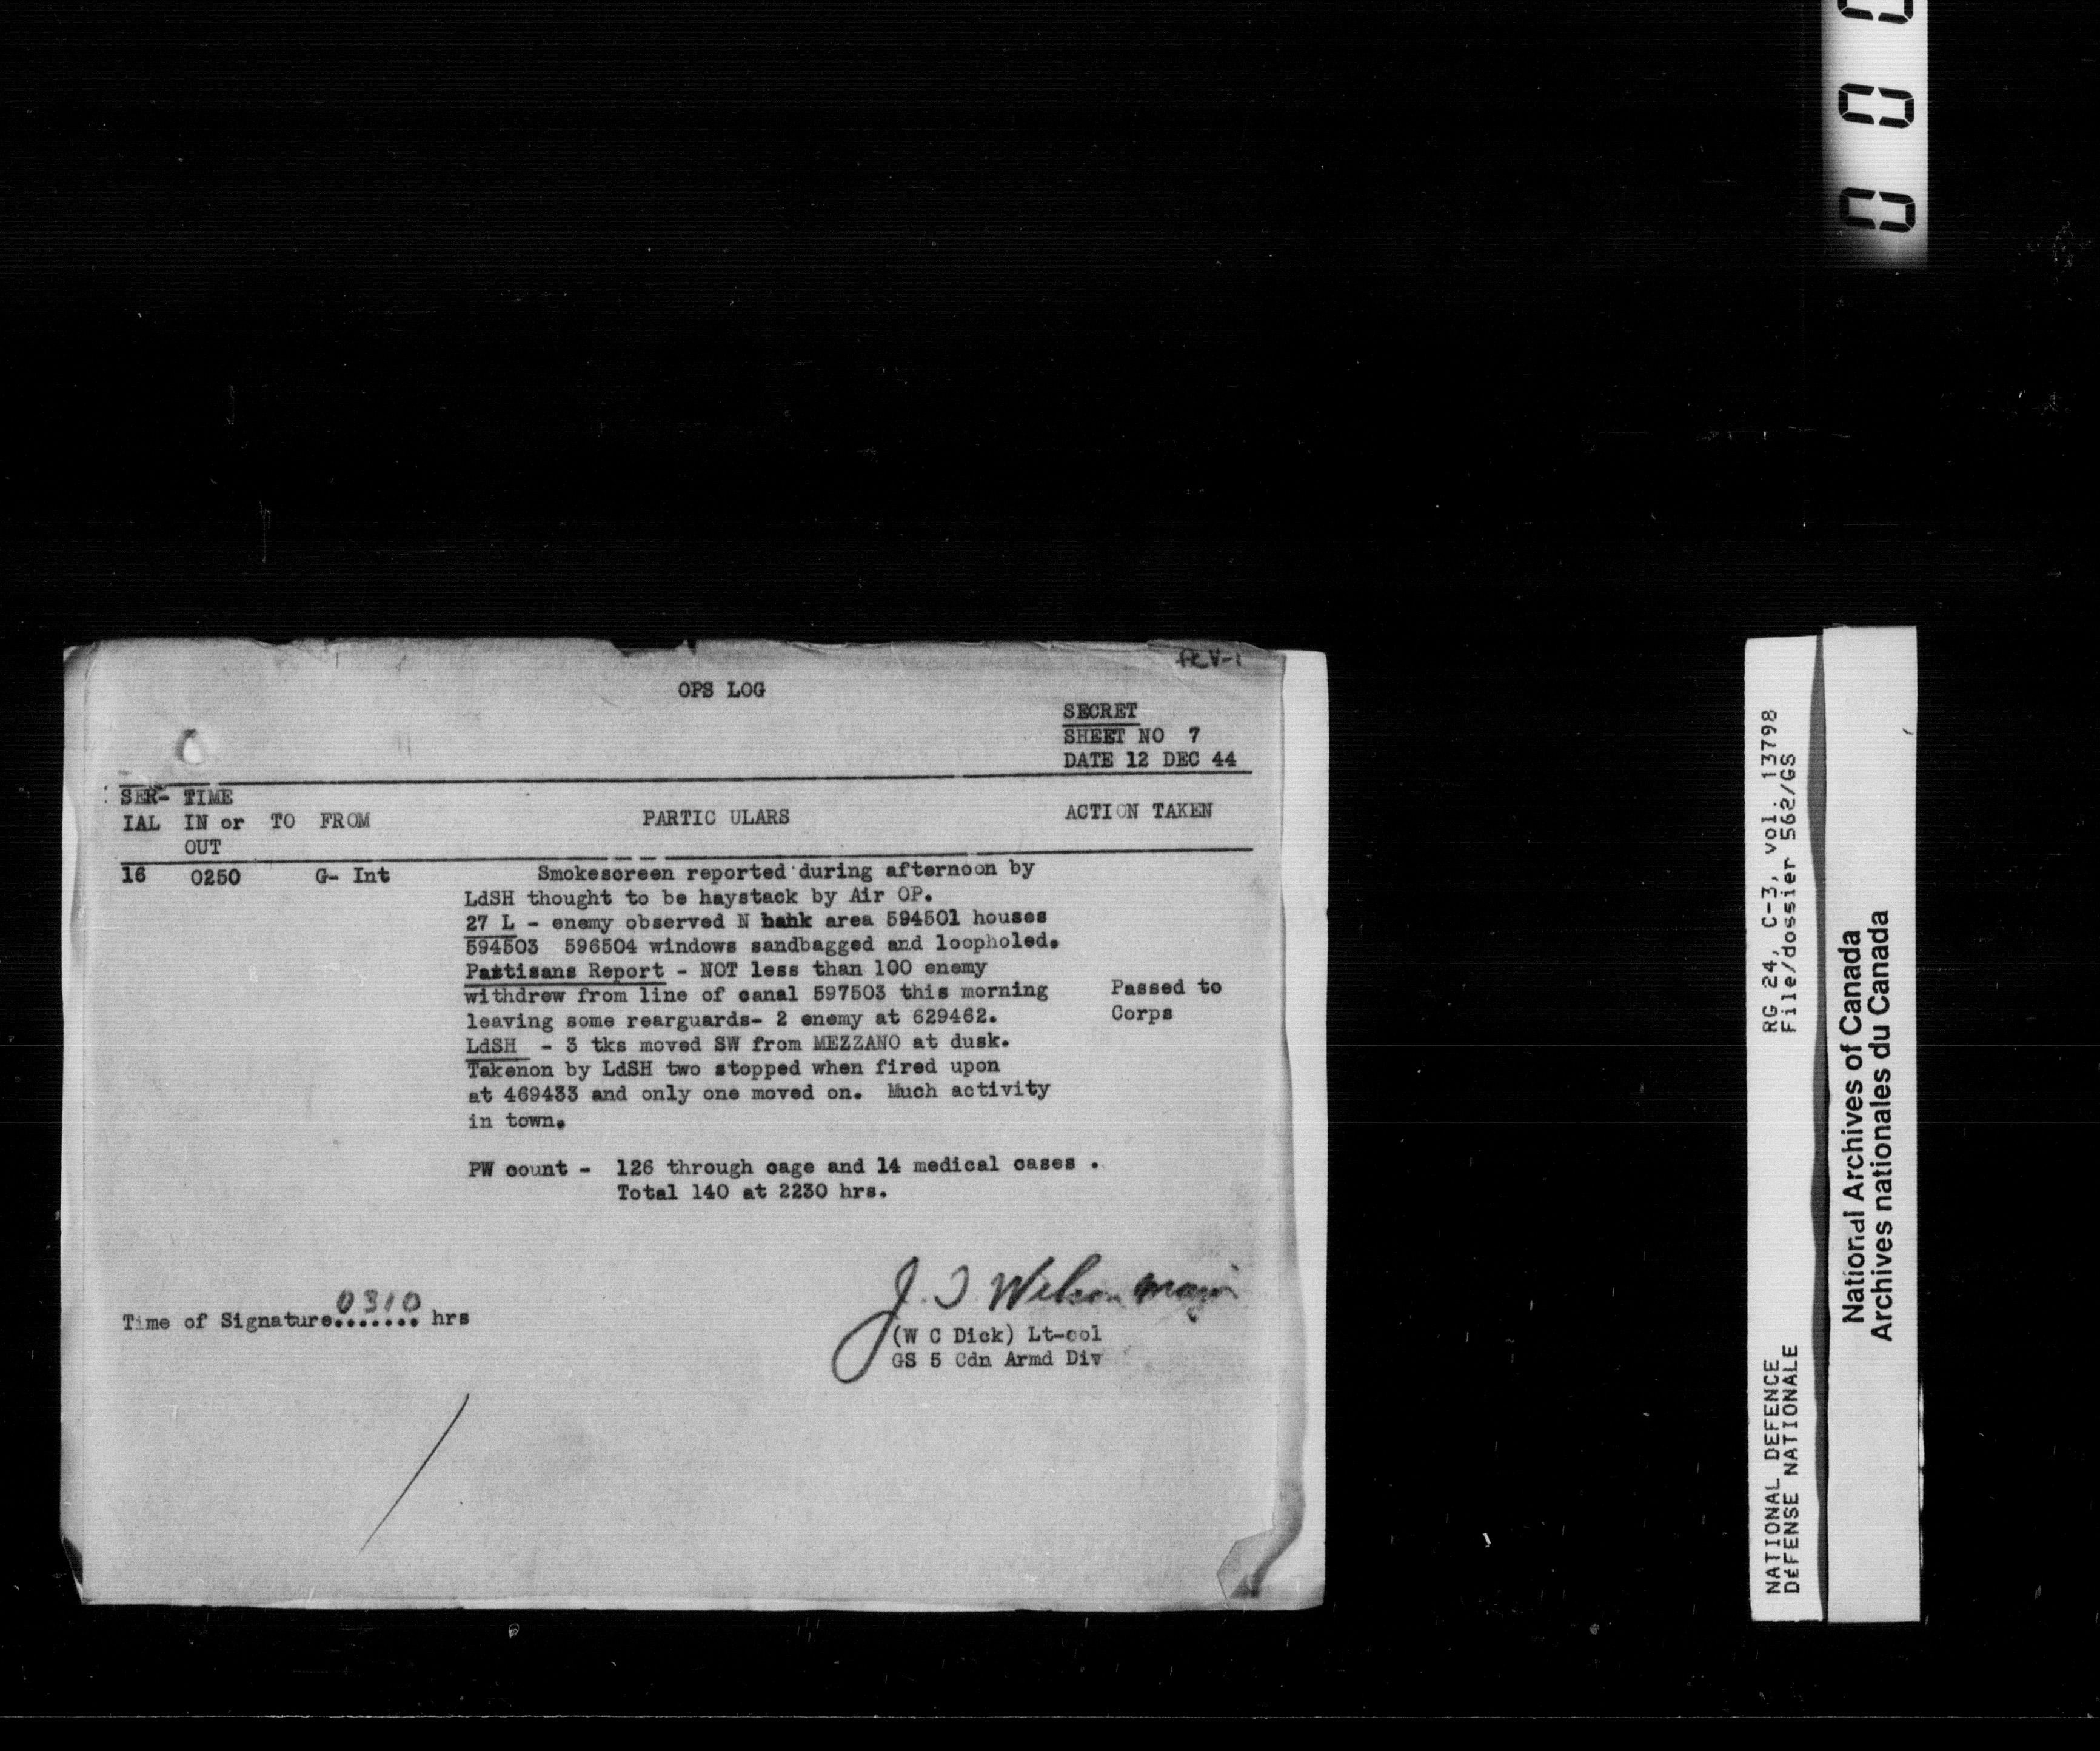 0 0 0
OPS LOG
SECRET
SHEET NO 7
DATE 12 DEC 44
SER- TIME
IAL IN or TO FROM PARTIC ULARS ACTION TAKEN
OUT
16 0250 G- Int Smokescreen reported during afternoon by
LdSH thought to be haystack by Air OP.
27 L - enemy observed N bank area 594501 houses
594503 596504 windows sandbagged and loopholed.
Partisans Report - NOT less than 100 enemy
withdrew from line of canal 597503 this morning Passed to
leaving some rearguards- 2 enemy at 629462. Corps
LdSH - 3 tks moved SW from MEZZANO at dusk.
Takenon by LdSH two stopped when fired upon
at 469433 and only one moved on. Much activity
in town.
PW count - 126 through cage and 14 medical cases .
Total 140 at 2230 hrs.
J. Wilson Major
Time of Signature 0310 ....... hrs
(W C Dick) Lt-col
GS 5 Cdn Armd Div
NATIONAL DEFENCE RG 24, C-3, vol. 13798
DÉFENSE NATIONALE File/dossier 562/GS
National Archives of Canada
Archives nationales du Canada